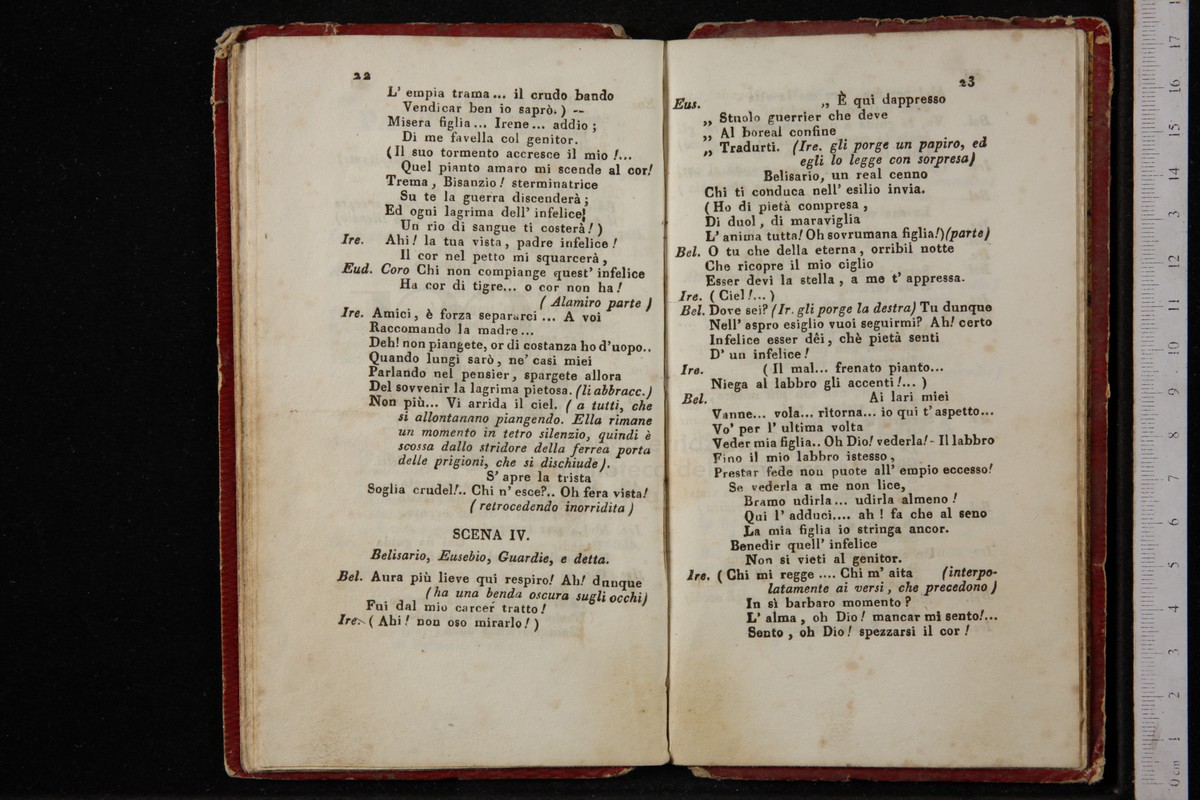 22
L' empia trama... il crudo bando
Vendicar ben io saprò.) —
Misera figlia... Irene... addio ;
Di me favella col genitor.
(Il suo tormento accresce il mio !...
Quel pianto amaro mi scende al cor!
Trema, Bisanzio! sterminatrice
Su te la guerra discenderà ;
Ed ogni lagrima dell' infelice
Un rio di sangue ti costerà!)
Ire. Ahi! la tua vista, padre infelice!
Il cor nel petto mi squarcerà,
Eud. Coro Chi non compiange quest' infelice
Ha cor di tigre... o cor non ha!
( Alamiro parte )
Ire. Amici, è forza separarci ... A voi
Raccomando la madre...
Deh! non piangete, or di costanza ho d'uopo..
Quando lungi sarò, ne' casi miei
Parlando nel pensier, spargete allora
Del sovvenir la lagrima pietosa. (li abbracc.)
Non più... Vi arrida il ciel. ( a tutti, che
si allontanano piangendo. Ella rimane
un momento in tetro silenzio, quindi è
scossa dallo stridore della ferrea porta
delle prigioni, che si dischiude).
S' apre la trista
Soglia crudel!.. Chi n' esce?.. Oh fera vista!
( retrocedendo inorridita )
SCENA IV.
Belisario, Eusebio, Guardie, e detta.
Bel. Aura più lieve qui respiro! Ah! dunque
(ha una benda oscura sugli occhi)
Fui dal mio carcer tratto!
Ire. ( Ahi! non oso mirarlo!)
23
Eus. „ È qui dappresso
„ Stuolo guerrier che deve
„ Al boreal confine
„ Tradurti. (Ire. gli porge un papiro, ed
egli lo legge con sorpresa)
Belisario, un real cenno
Chi ti conduca nell' esilio invia.
(Ho di pietà compresa,
Di duol, di maraviglia
L' anima tutta! Oh sovrumana figlia!)(parte)
Bel. O tu che della eterna, orribil notte
Che ricopre il mio ciglio
Esser devi la stella, a me t' appressa.
Ire. ( Ciel!...)
Bel. Dove sei? (Ir. gli porge la destra) Tu dunque
Nell' aspro esiglio vuoi seguirmi? Ah! certo
Infelice esser dêi, chè pietà senti
D' un infelice!
Ire. ( Il mal... frenato pianto...
Niega al labbro gli accenti!... )
Bel. Ai lari miei
Vanne... vola... ritorna... io qui t' aspetto...
Vo' per l' ultima volta
Veder mia figlia.. Oh Dio! vederla! - Il labbro
Fino il mio labbro istesso,
Prestar fede non puote all' empio eccesso!
Se vederla a me non lice,
Bramo udirla... udirla almeno!
Qui l' adduci.... ah ! fa che al seno
La mia figlia io stringa ancor.
Benedir quell' infelice
Non si vieti al genitor.
Ire. ( Chi mi regge .... Chi m' aita (interpo-
latamente ai versi, che precedono )
In sì barbaro momento?
L' alma, oh Dio! mancar mi sento!...
Sento, oh Dio! spezzarsi il cor!
0 cm 1 2 3 4 5 6 7 8 9 10 11 12 13 14 15 16 17